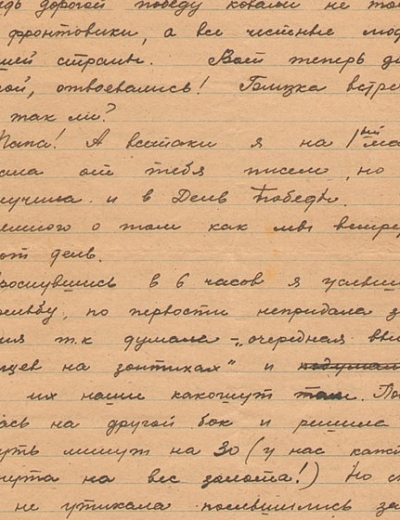 дорогой победу ковали не то
фронтовики, а все честные люд
шей страны. Вот теперь д
ой, отвоевались! Близка встре
так ли?
Папа! А всетаки я на 1ый ма
ала от тебя писем, но
лучила и в День Победы.
емного о том как мы встре
от день.
роснувшись в 6 часов я услыш
рельбу, по первости непридала з
ия т.к думала - „очередная
цев на зонтиках" и
их наши какошут там. По
ась на другой бок и решила
уть минут на 30 (у нас кажд
нута на вес золота!) Но с
не утихала послышались